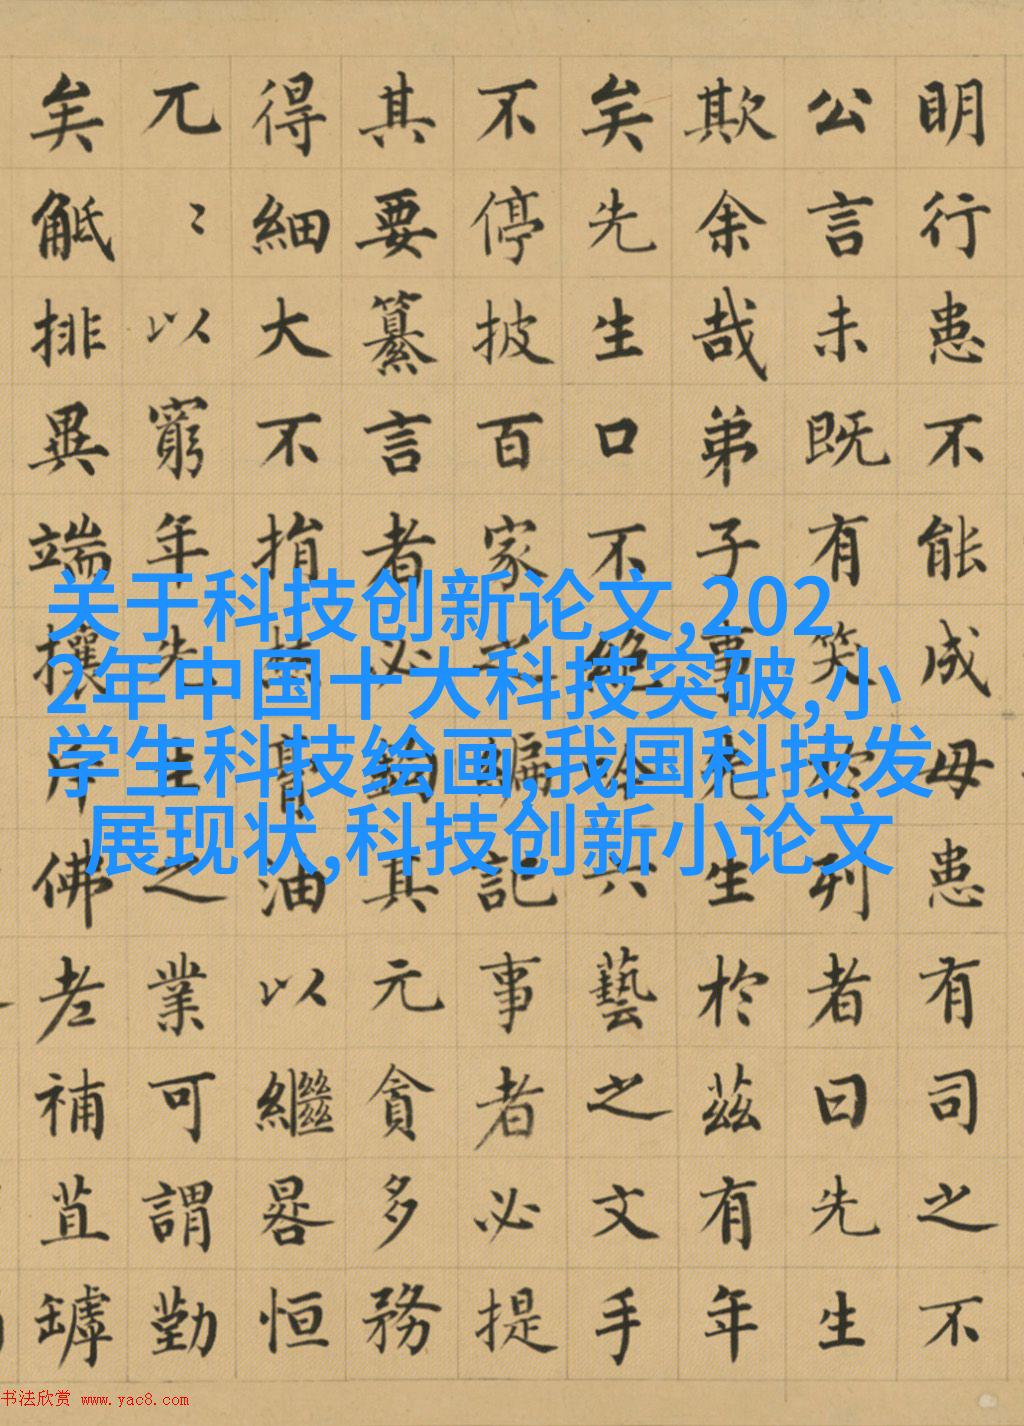 明行患不能成毋患有司之不
公言未既有笑於列者曰先生
欺余哉弟子事先生於茲有年
矣先生口不絕吟六藝之文手
不停披百家之編記事者必提
其要纂言者必鉤其元貪多務
得細大不捐焚膏油以繼晷恒
兀〻以窮年先生之業可謂勤
矣觝排異端攘斥佛老補苴罅
关于科技创新论文,202
2年中国十大科技突破,小
学生科技绘画,我国科技发
展现状,科技创新小论文
书法欣赏 www.yac8.com